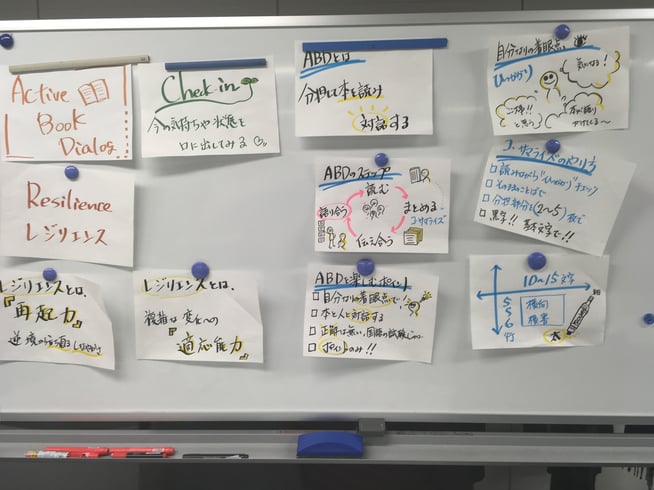 Active
Book
Dialog
Check in
今の気持ちや状態を
口に出してみる
ABDとは
分担して本を読み
対話する
自分なりの着眼点
ひっかかり
気になる!
Resilience
レジリエンス
ABDのステップ
読む
まとめる
コ・サマライズ
伝え合う
語り合う
コ・サマライズのやり方
□ 読みながら"ひっかかり"チェック
□ そのままのことばで
□ 分担部分を(2〜5)枚で
□ 黒字!! 基本文字で!!
レジリエンスとは、
『再起力』
レジリエンスとは、
複雑な変化への
『適応能力』
ABDを楽しむポイント
□ 自分なりの着眼点で!
□ 本と人と対話する
□ 正解は無い、国語の試験じゃ
□ ポイントのみ!!
10〜15文字
5
5
6
行
横向
横書
太